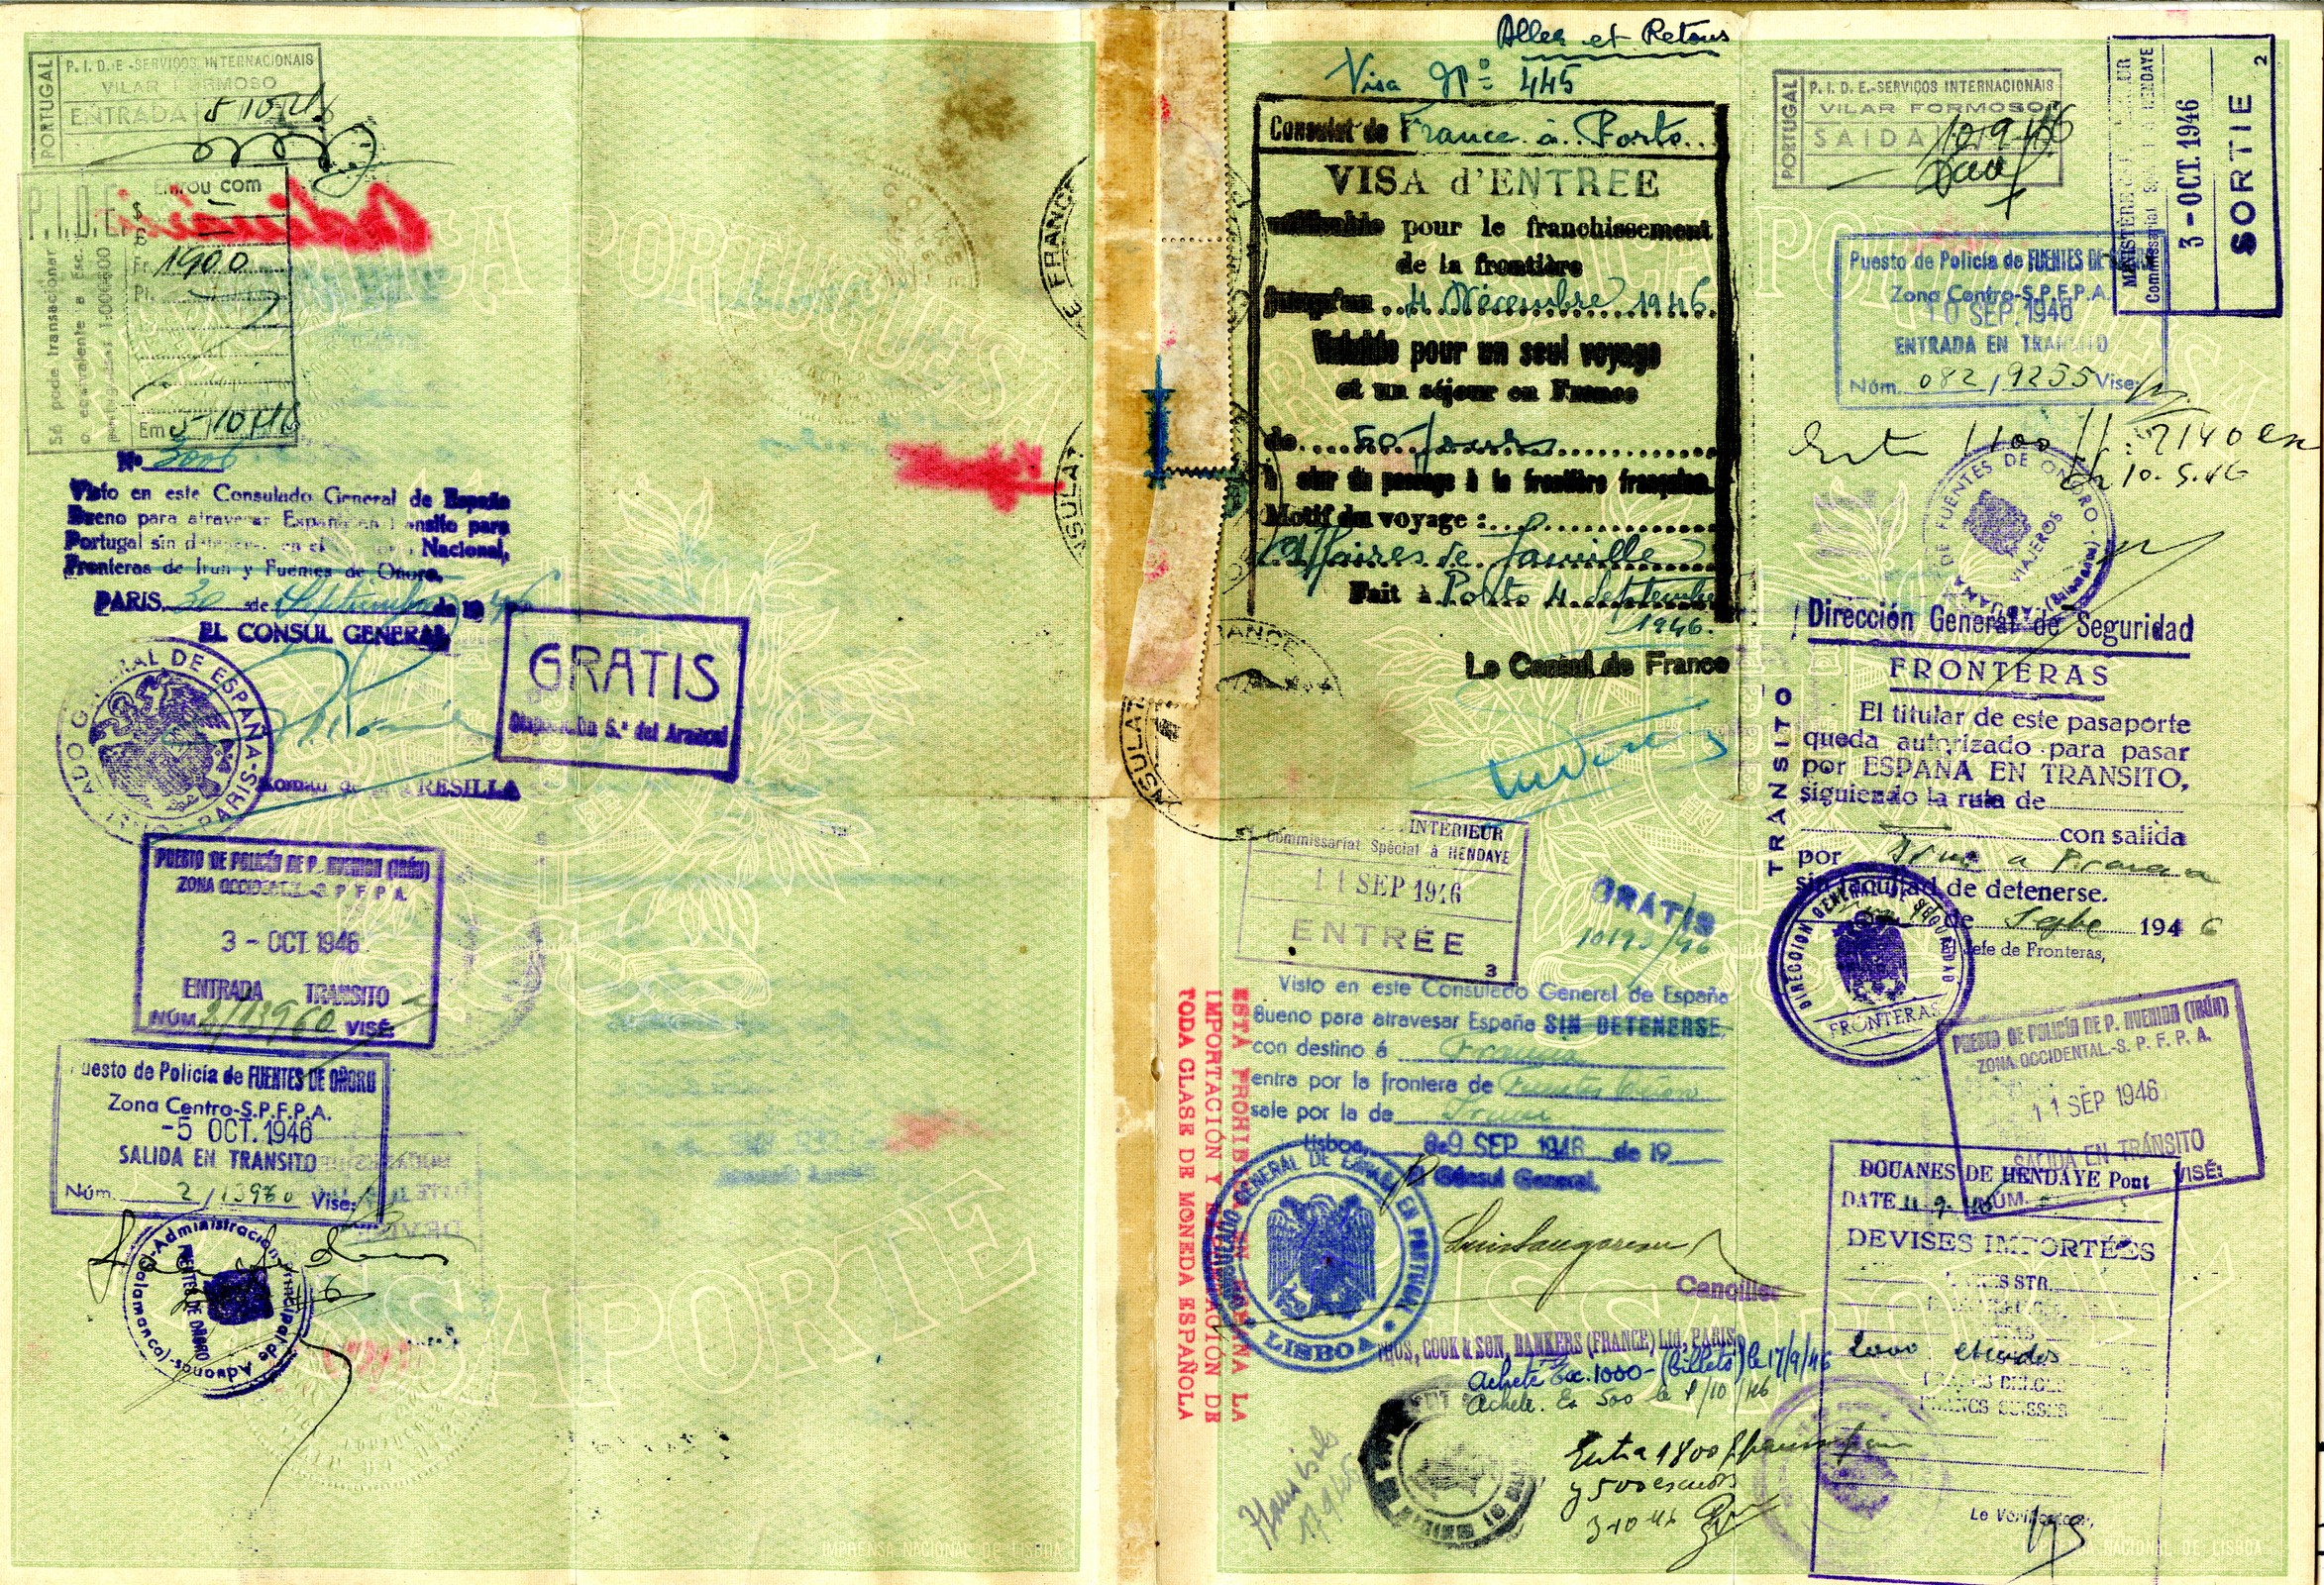 PORTUGAL
P. I. D. E -SERVIÇOS INTERNACIONAIS
VILAR FORMOSO
ENTRADA 5 10 46
P.I.D.E.
Entrou com
$
£
Fr. 1900
Pt.
Só pode transacionar
o equivalente a Esc.
Em 5-10-46
No 3006
Visto en este Consulado General de España
Bueno para atravesar España en transito para
Portugal sin detenerse en el Nacional,
Fronteras de Irun y Fuentes de Oñoro.
PARIS, 30 de Septiembre de 1946
EL CONSUL GENERAL
CONSULADO GENERAL DE ESPAÑA - PARIS
GRATIS
Disposición 5.ª del Arancel
PUESTO DE POLICÍA DE P. AVENIDA (IRÚN)
ZONA OCCIDENTAL.-S. P. F. P. A.
3 - OCT. 1946
ENTRADA TRANSITO
NÚM 2/13960 VISÉ:
Puesto de Policía de FUENTES DE OÑORO
Zona Centro-S.P.F.P.A.
-5 OCT. 1946
SALIDA EN TRANSITO
Núm. 2 / 13960 Vise:
Administración Principal de Aduanas-
FUENTES DE OÑORO
(Salamanca)
PASSAPORTE
IMPRENSA NACIONAL DE LISBOA
Aller et Retour
Visa Nº 445
Consulat de France à Porto
VISA d'ENTREE
pour le franchissement
de la frontière
jusqu'au 4 Décembre 1946
Valable pour un seul voyage
et un séjour en France
de jours
à dater du passage à la frontière française.
Motif du voyage :
Affaires de famille
Fait à Porto 4 Septembre
1946.
Le Consul de France
INTERIEUR
Commissariat Spécial à HENDAYE
11 SEP 1946
ENTRÉE
3
GRATIS
10193/46
Visto en este Consulado General de España
Bueno para atravesar España SIN DETENERSE
con destino á Francia
entra por la frontera de Fuentes Oñoro
sale por la de Irun
Lisboa, 9 SEP 1946 de 19
Cónsul General,
Canciller
CONSULADO GENERAL DE ESPAÑA EN PORTUGAL
LISBOA
ESTÁ PROHIBIDA EN ESPAÑA LA
IMPORTACIÓN Y EXPORTACIÓN DE
TODA CLASE DE MONEDA ESPAÑOLA
THOS, COOK & SON, BANKERS (FRANCE) Ltd, PARIS
Acheté Esc. 1000 - (billets) le 17/9/46
Acheté Es 500 le 1/10/46
17/9/46
Entra 1800
y 500 escudos
3-10-46
PORTUGAL
P. I. D. E.-SERVIÇOS INTERNACIONAIS
VILAR FORMOSO
SAIDA 10 9 46
Commissariat HENDAYE
3 - OCT. 1946
SORTIE
2
Puesto de Policía de FUENTES DE OÑORO
Zona Centro-S.P.F.P.A.
10 SEP. 1946
ENTRADA EN TRANSITO
Núm. 082 / 9255 Vise:
ADUANA DE FUENTES DE OÑORO
VIAJEROS
(Salamanca)
TRANSITO
Dirección General de Seguridad
FRONTERAS
El titular de este pasaporte
queda autorizado para pasar
por ESPAÑA EN TRANSITO,
siguiendo la ruta de
con salida
por Irun a Francia
sin facultad de detenerse.
de Sepbe 1946
Jefe de Fronteras,
DIRECCION GENERAL DE SEGURIDAD
FRONTERAS
PUESTO DE POLICÍA DE P. AVENIDA (IRÚN)
ZONA OCCIDENTAL.-S. P. F. P. A.
11 SEP 1946
SALIDA EN TRÁNSITO
NÚM. VISÉ:
DOUANES DE HENDAYE Pont
DATE 11-9-46
DEVISES IMPORTÉES
LIVRES STR.
2000 escudos
FRANCS BELGES
FRANCS SUISSES
Le Vérificateur,
IMPRENSA NACIONAL DE LISBOA